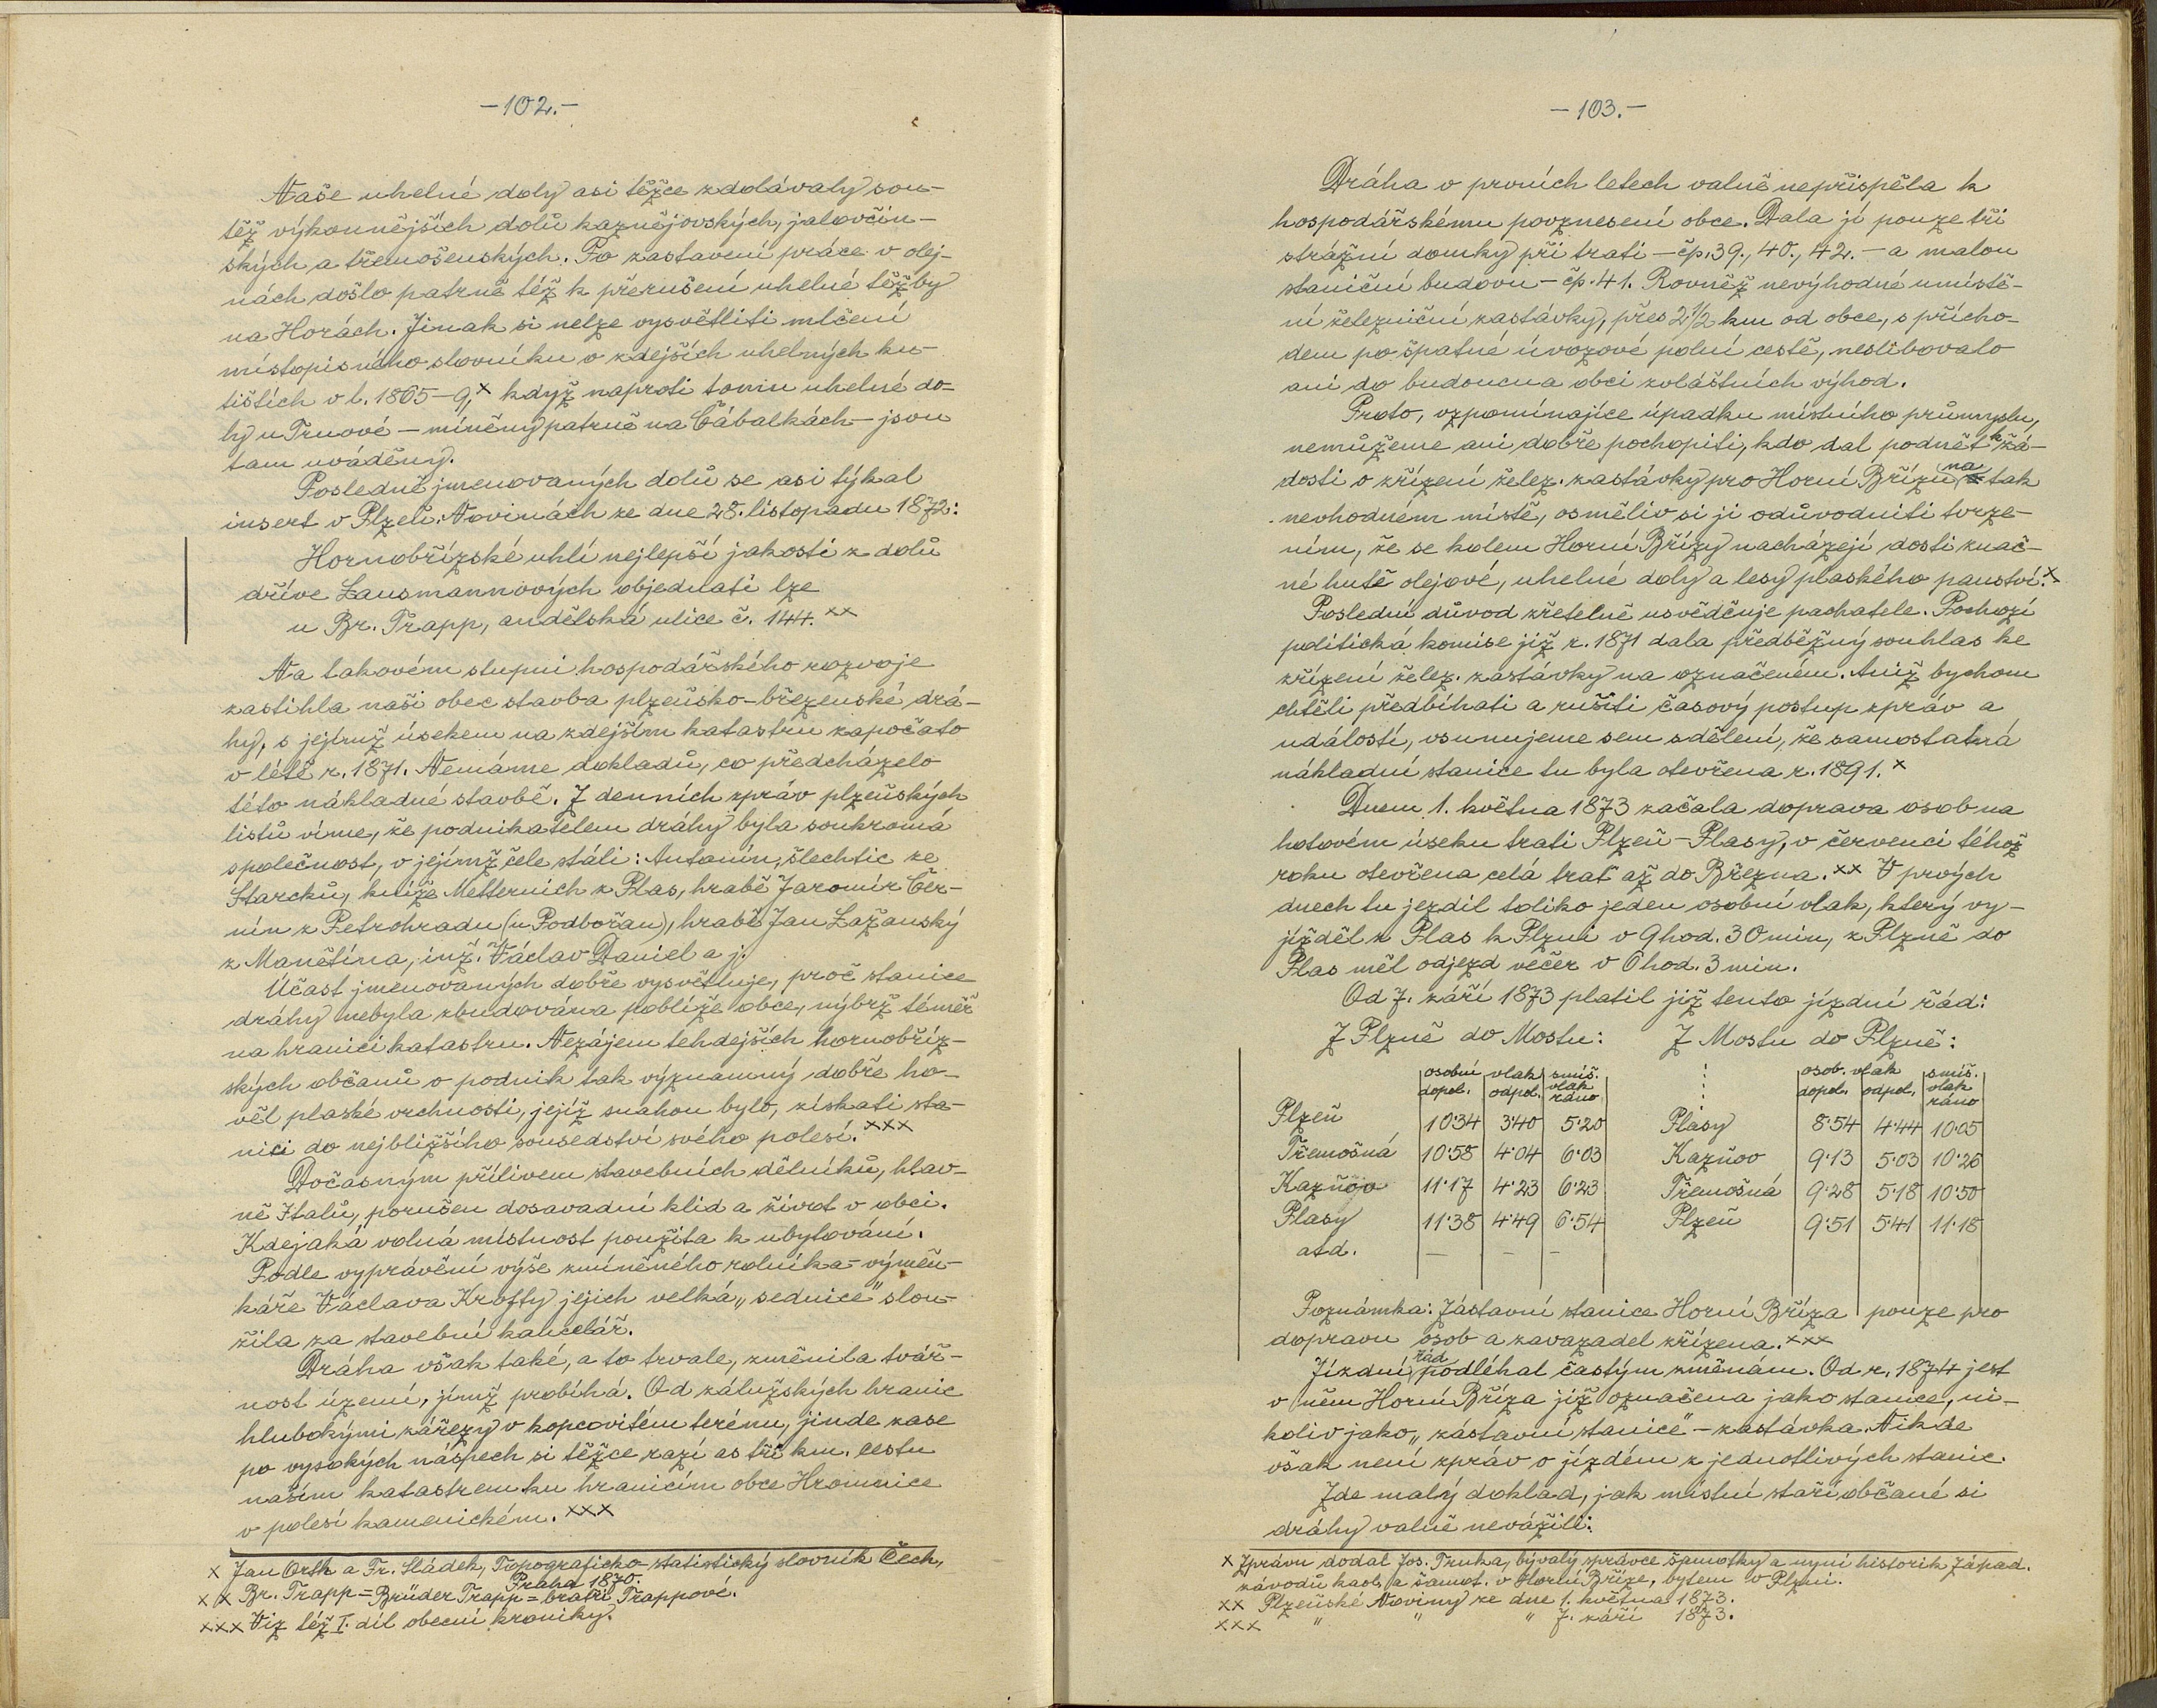 -102.-
Naše uhelné doly asi těžce zdolávaly sou-
těž výkonnějších dolů kaznějovských, jalovčin-
ských a třemošenských. Po zastavení práce v olej-
nách došlo patrně též k přerušení uhelné těžby
na Horách. Jinak si nelze vysvětliti mlčení
místopisného slovníku o zdejších uhelných ku-
tištích v l. 1865-9,× když naproti tomu uhelné do-
ly u Trnové - míněny patrně na Čábalkách - jsou
tam uváděny.
Posledně jmenovaných dolů se asi týkal
insert v Plzeň. Novinách ze dne 28. listopadu 1872:
Hornobřízské uhlí nejlepší jakosti z dolů
dříve Lausmannových objednati lze
u Br. Trapp, andělská ulice č. 144. ××
Na takovém stupni hospodářského rozvoje
zastihla naši obec stavba plzeňsko-březenské drá-
hy, s jejímž úsekem na zdejším katastru započato
v létě r. 1871. Nemáme dokladů, co předcházelo
této nákladné stavbě. Z denních zpráv plzeňských
listů víme, že podnikatelem dráhy byla soukromá
společnost, v jejímž čele stáli: Antonín, šlechtic ze
Starcků, kníže Metternich z Plas, hrabě Jaromír Čer-
nín z Petrohradu (u Podbořan), hrabě Jan Lažanský
z Manětína, inž. Václav Daniel a j.
Účast jmenovaných dobře vysvětluje, proč stanice
dráhy nebyla zbudována poblíže obce, nýbrž téměř
na hranici katastru. Nezájem tehdejších hornobříz-
ských občanů o podnik tak významný dobře ho-
věl plaské vrchnosti, jejíž snahou bylo, získati sta-
nici do nejbližšího sousedství svého polesí. ×××
Dočasným přílivem stavebních dělníků, hlav-
ně Italů, porušen dosavadní klid a život v obci.
Kdejaká volná místnost použita k ubytování.
Podle vyprávění výše zmíněného rolníka-výměn-
káře Václava Krofty jejich velká „sednice" slou-
žila za stavební kancelář.
Dráha však také, a to trvale, změnila tvář-
nost území, jímž probíhá. Od zálužských hranic
hlubokými zářezy v kopcovitém terénu, jinde zase
po vysokých náspech si těžce razí as tři km. cestu
naším katastrem ku hranicím obce Hromnice
v polesí kamenickém. ×××
× Jan Orth a Fr. Sládek, Topograficko-statistický slovník Čech,
Praha 1870.
×× Br. Trapp = Brüder Trapp = bratři Trappové.
××× Viz též I. díl obecní kroniky.
-103.-
Dráha v prvních letech valně nepřispěla k
hospodářskému povznesení obce. Dala jí pouze tři
strážní domky při trati - čp. 39., 40., 42. - a malou
staniční budovu - čp. 41. Rovněž nevýhodné umístě-
ní železniční zastávky, přes 2 1/2 km od obce, s přícho-
dem po špatné úvozové polní cestě, neslibovalo
ani do budoucna obci zvláštních výhod.
Proto, vzpomínajíce úpadku místního průmyslu,
nemůžeme ani dobře pochopiti, kdo dal podnět k žá-
dosti o zřízení želez. zastávky pro Horní Břízu na tak
nevhodném místě, osměliv si ji odůvodniti tvrze-
ním, že se kolem Horní Břízy nacházejí dosti znač-
né hutě olejové, uhelné doly a lesy plaského panství. ×
Poslední důvod zřetelně usvědčuje pachatele. Pochozí
politická komise již r. 1871 dala předběžný souhlas ke
zřízení želez. zastávky na označeném. Aniž bychom
chtěli předbíhati a rušiti časový postup zpráv a
událostí, vsunujeme sem sdělení, že samostatná
nákladní stanice tu byla otevřena r. 1891. ×
Dnem 1. května 1873 začala doprava osob na
hotovém úseku trati Plzeň-Plasy, v červenci téhož
roku otevřena celá trať až do Března. ×× V prvých
dnech tu jezdil toliko jeden osobní vlak, který vy-
jížděl z Plas k Plzni v 9 hod. 30 min, z Plzně do
Plas měl odjezd večer v 6 hod. 3 min.
Od 7. září 1873 platil již tento jízdní řád:
Z Plzně do Mostu: Z Mostu do Plzně:
osobní vlak smíš. osob. vlak smíš.
dopol. odpol. vlak ráno dopol. odpol. vlak ráno
Plzeň 10·34 3·40 5·20 Plasy 8·54 4·44 10·05
Třemošná 10·58 4·04 6·03 Kazňov 9·13 5·03 10·26
Kazňov 11·17 4·23 6·23 Třemošná 9·28 5·18 10·50
Plasy 11·38 4·49 6·54 Plzeň 9·51 5·41 11·18
atd. - - -
Poznámka: Zástavní stanice Horní Bříza pouze pro
dopravu osob a zavazadel zřízena. ×××
Jízdní řád podléhal častým změnám. Od r. 1874 jest
v něm Horní Bříza již označena jako stanice, ni-
koliv jako „zástavní stanice" - zastávka. Nikde
však není zpráv o jízdném z jednotlivých stanic.
Zde malý doklad, jak místní staří občané si
dráhy valně nevážili:
× Zprávu dodal Jos. Trnka, bývalý správce šamotky a nyní historik Západ.
závodů kaol. a šamot. v Horní Bříze, bytem v Plzni.
×× Plzeňské Noviny ze dne 1. května 1873.
××× " " " 7. září 1873.